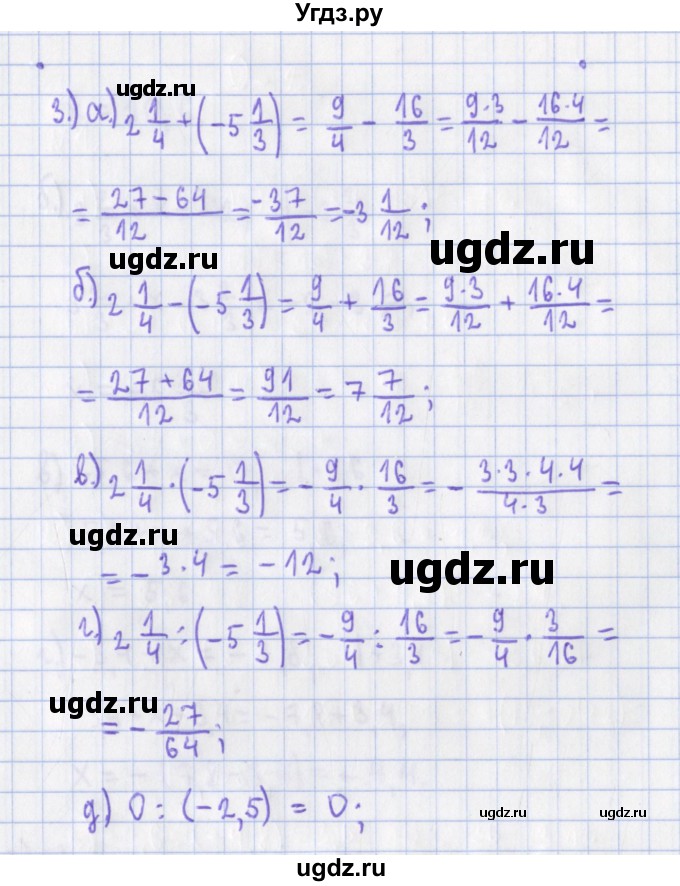 Угдз.ру
ugdz.ru
3.) а) 2 1/4 + (-5 1/3) = 9/4 - 16/3 = 9·3/12 - 16·4/12 =
= 27-64/12 = -37/12 = -3 1/12;
ugdz.ru
б) 2 1/4 - (-5 1/3) = 9/4 + 16/3 = 9·3/12 + 16·4/12 =
= 27+64/12 = 91/12 = 7 7/12;
в) 2 1/4 · (-5 1/3) = - 9/4 · 16/3 = - 3·3·4·4/4·3 =
ugdz.ru
= -3·4 = -12;
ugdz.ru
г) 2 1/4 : (-5 1/3) = - 9/4 : 16/3 = - 9/4 · 3/16 =
ugdz.ru
= - 27/64;
д) 0 : (-2,5) = 0;
ugdz.ru
ugdz.ru
ugdz.ru